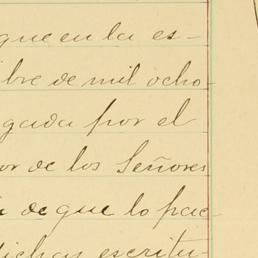 que en la es-
bre de mil ocho-
gada por el
or de los Señores
de que lo pac
dichas escritu-